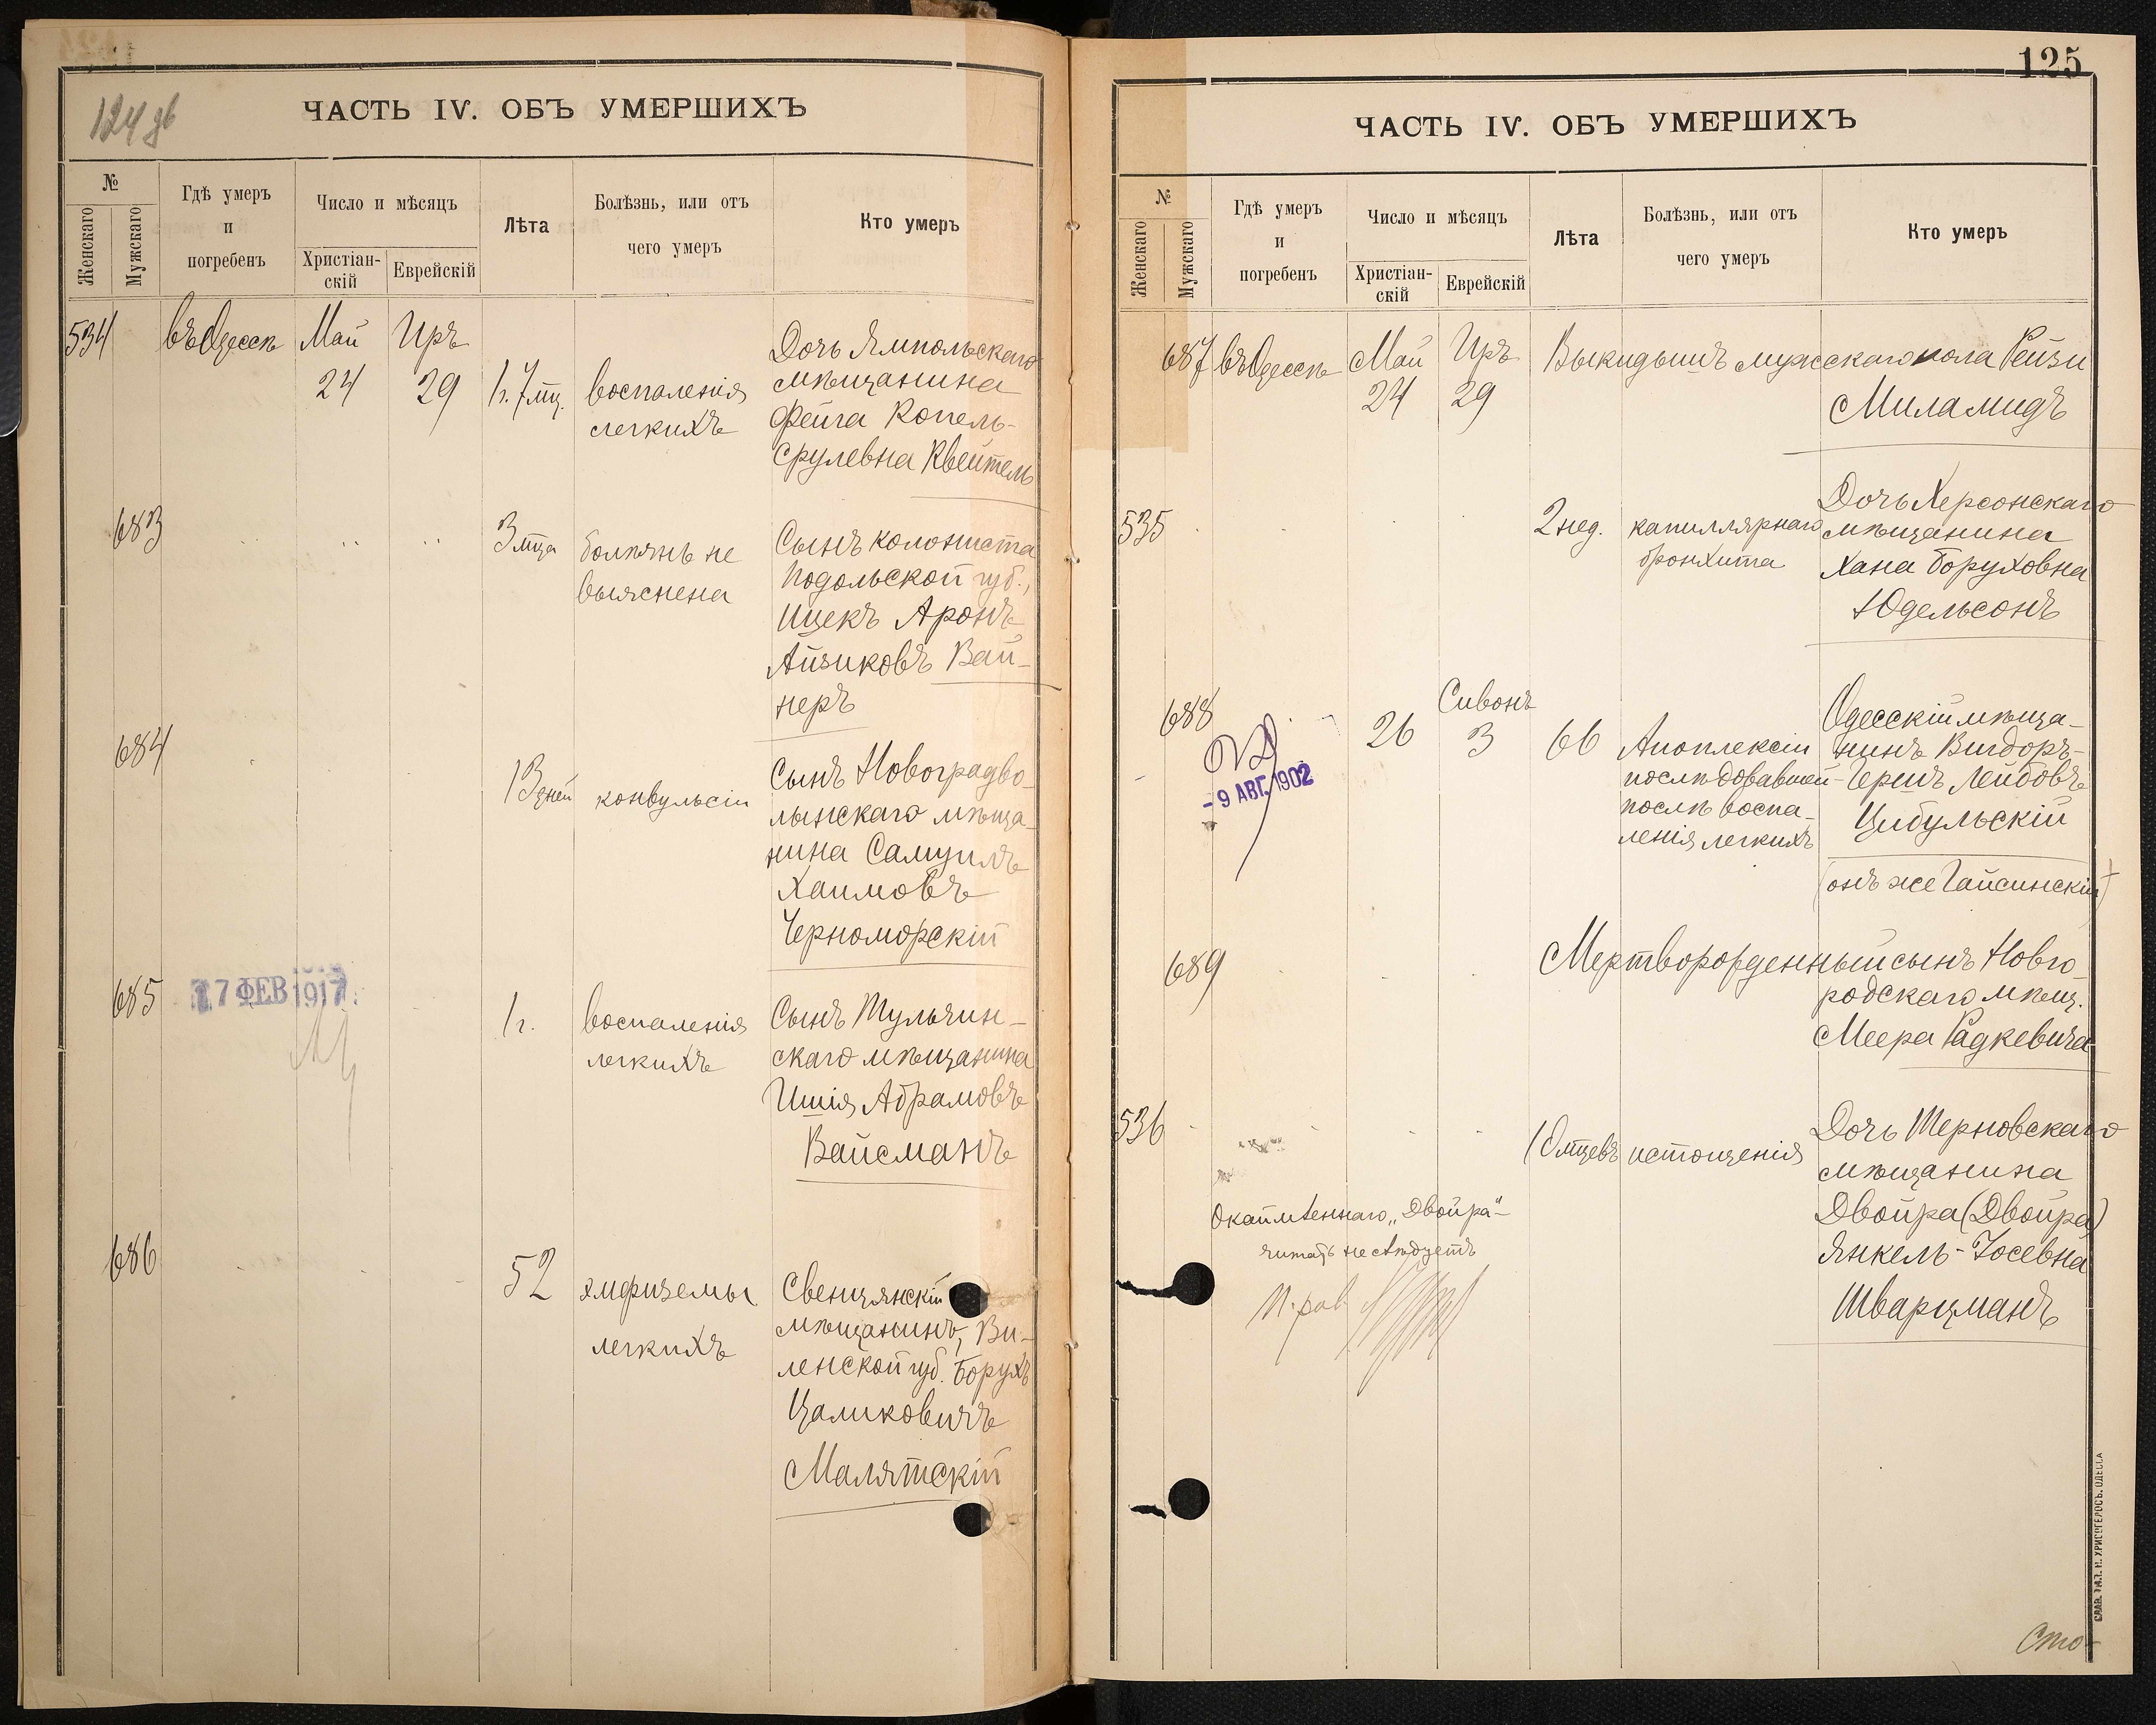 124 об
ЧАСТЬ IV. ОБЪ УМЕРШИХЪ
№
Женскаго
Мужскаго
Гдѣ умеръ
и
погребенъ
Число и мѣсяцъ
Христіан-
скій
Еврейскій
Лѣта
Болѣзнь, или отъ
чего умеръ
Кто умеръ
534 въ Одессѣ Май Иръ
24 29 1г. 7 мц. воспаленія
легкихъ
Дочь Ямпольскаго
мѣщанина
Фейга Копель-
Срулевна Квейтель
683 3 мца болѣзнь не
выяснена
Сынъ колониста
Подольской губ.,
Ицекъ Аронъ
Айзиковъ Вай-
неръ
684 13 дней конвульсіи
Сынъ Новоградво-
лынскаго мѣща-
нина Самуилъ
Хаимовъ
Черноморскій
685 17 ФЕВ 1917
1г. воспаленія
легкихъ
Сынъ Тульчин-
скаго мѣщанина
Ишія Абрамовъ
Вайсманъ
686 52 эмфиземы
легкихъ
Свенцянскій
мѣщанинъ, Ви-
ленской губ. Борухъ
Цаликовичъ
Малятскій
125
ЧАСТЬ IV. ОБЪ УМЕРШИХЪ
№
Женскаго
Мужскаго
Гдѣ умеръ
и
погребенъ
Число и мѣсяцъ
Христіан-
скій
Еврейскій
Лѣта
Болѣзнь, или отъ
чего умеръ
Кто умеръ
687 въ Одессѣ Май Иръ Выкидышъ мужскаго пола Рейзи
24 29 Миламидъ
535 2 нед. капиллярнаго
бронхита
Дочь Херсонскаго
мѣщанина
Хана Боруховна
Юдельсонъ
688 26 Сивонъ
3 66 Апоплексіи
послѣдовавшей
послѣ воспа-
ленія легкихъ
- 9 АВГ. 1902
Одесскій мѣща-
нинъ Вигдоръ-
Гершъ Лейбовъ
Цибульскій
(онъ же Гайсинскій)
689 Мертворожденный сынъ Новго-
родскаго мѣщ.
Меера Радкевича
536 10 мцевъ истощенія
Дочь Терновскаго
мѣщанина
Двойра (Двойра)
Янкель-Іосевна
Шварцманъ
Окаймленнаго „Двойра"-
читать не слѣдуетъ
И. рав.
СЛАВ. ТИП. Н. ХРИСОГЕЛОСЪ, ОДЕССА
Сто-